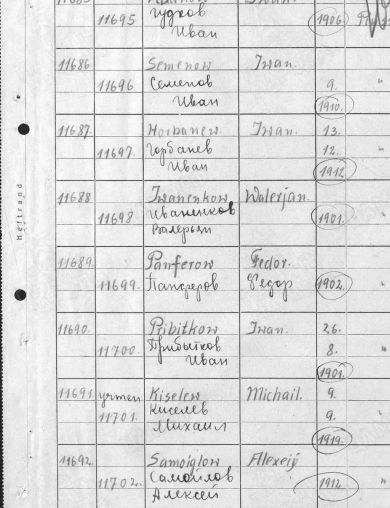 11695 Гудков 1906.
Иван
11686 Semenow Iwan.
11696 Семенов 9. "
Иван 1910.
11687 Horbanew Iwan. 13.
11697. Горбанев 12. "
Иван 1912
11688 Iwanenkow Walerjan.
11698 Иваненков 1901. "
Валерьян
11689. Panferow Fedor.
11699. Панферов Федор 1902. "
11690. Pribitkow Iwan. 26.
11700. Прибытков 8. "
Иван 1901.
11691 умген Kiselew Michail. 9.
11701. Киселев 9. "
Михаил 1919.
11692. Samoiglow Alexeij
11702. Самойлов 1912. "
Алексей
Heftrand